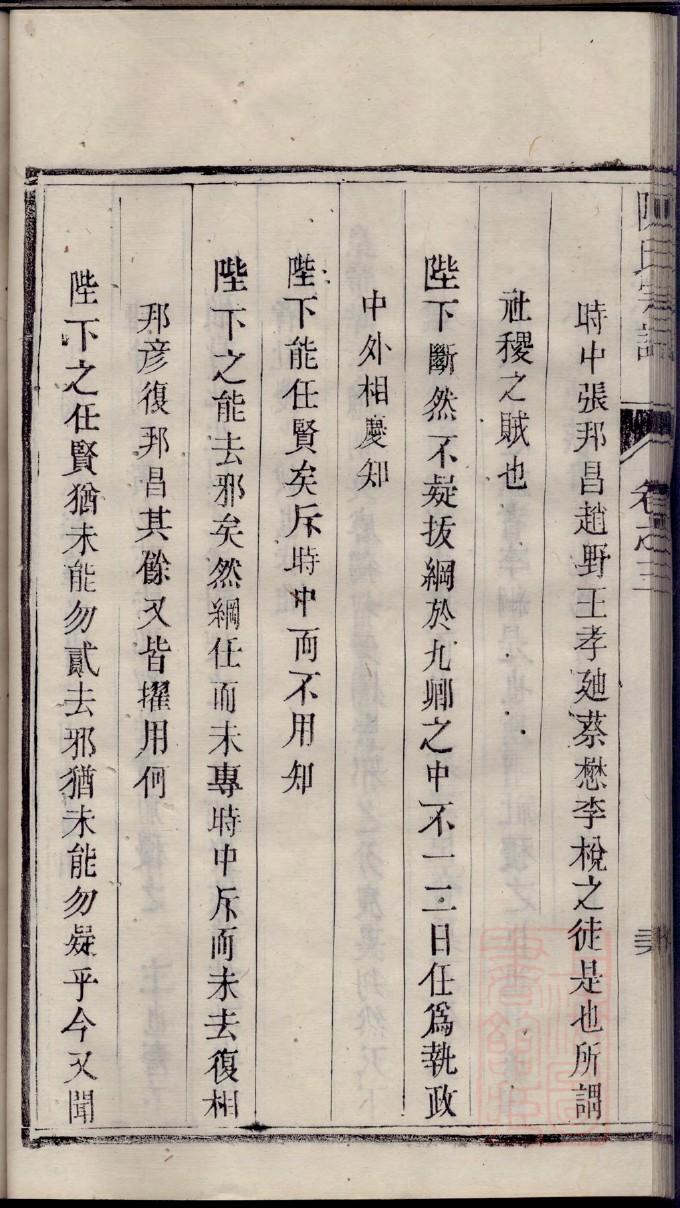 陳氏宗譜
卷之三
時中張邦昌趙野王孝廸蔡懋李梲之徒是也所謂
社稷之賊也
陛下斷然不疑拔綱於九卿之中不一二日任爲執政
中外相慶知
陛下能任賢矣斥時中而不用知
陛下之能去邪矣然綱任而未專時中斥而未去復相
邦彦復邦昌其餘又皆擢用何
陛下之任賢猶未能勿貳去邪猶未能勿疑乎今又聞